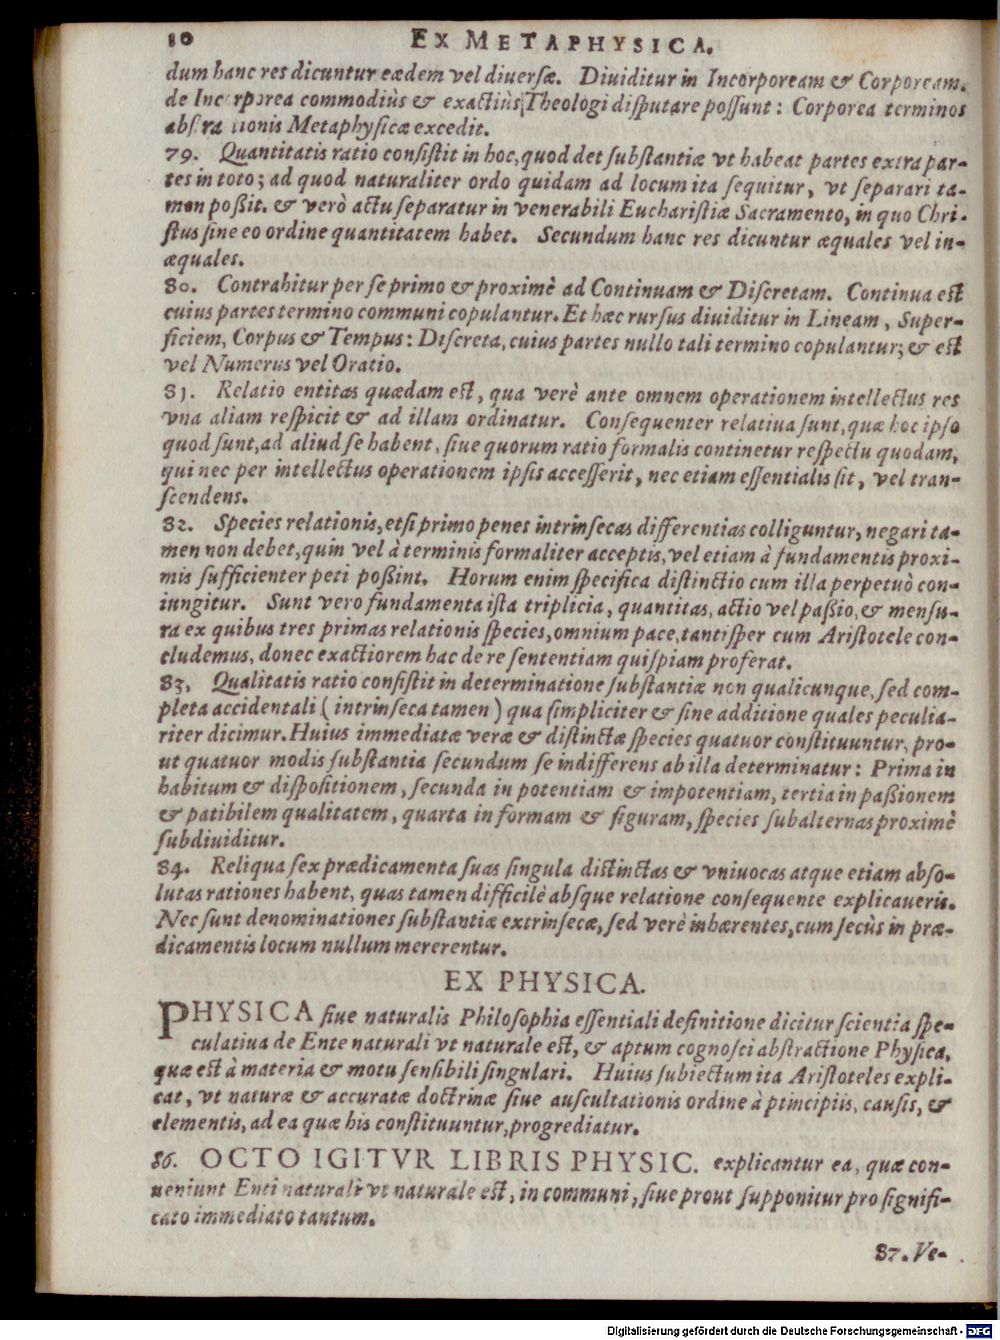 10 EX METAPHYSICA.
dum hanc res dicuntur eædem vel diuersæ. Diuiditur in Incorpoream & Corpoream.
de Incorporea commodiùs & exactiùs Theologi disputare possunt: Corporea terminos
abstractionis Metaphysicæ excedit.
79. Quantitatis ratio consistit in hoc, quod det substantiæ vt habeat partes extra par-
tes in toto; ad quod naturaliter ordo quidam ad locum ita sequitur, vt separari ta-
men poßit. & verò actu separatur in venerabili Eucharistiæ Sacramento, in quo Chri-
stus sine eo ordine quantitatem habet. Secundum hanc res dicuntur æquales vel in-
æquales.
80. Contrahitur per se primo & proximè ad Continuam & Discretam. Continua est
cuius partes termino communi copulantur. Et hæc rursus diuiditur in Lineam, Super-
ficiem, Corpus & Tempus: Discreta, cuius partes nullo tali termino copulantur; & est
vel Numerus vel Oratio.
81. Relatio entitas quædam est, qua verè ante omnem operationem intellectus res
vna aliam respicit & ad illam ordinatur. Consequenter relatiua sunt, quæ hoc ipso
quod sunt, ad aliud se habent, siue quorum ratio formalis continetur respectu quodam,
qui nec per intellectus operationem ipsis accesserit, nec etiam essentialis sit, vel tran-
scendens.
82. Species relationis, etsi primo penes intrinsecas differentias colliguntur, negari ta-
men non debet, quin vel à terminis formaliter acceptis, vel etiam à fundamentis proxi-
mis sufficienter peti poßint. Horum enim specifica distinctio cum illa perpetuò con-
iungitur. Sunt vero fundamenta ista triplicia, quantitas, actio vel paßio, & mensu-
ra ex quibus tres primas relationis species, omnium pace, tantisper cum Aristotele con-
cludemus, donec exactiorem hac de re sententiam quispiam proferat.
83. Qualitatis ratio consistit in determinatione substantiæ non qualicunque, sed com-
pleta accidentali (intrinseca tamen) qua simpliciter & sine additione quales peculia-
riter dicimur. Huius immediatæ veræ & distinctæ species quatuor constituuntur, pro-
ut quatuor modis substantia secundum se indifferens ab illa determinatur: Prima in
habitum & dispositionem, secunda in potentiam & impotentiam, tertia in paßionem
& patibilem qualitatem, quarta in formam & figuram, species subalternas proximè
subdiuiditur.
84. Reliqua sex prædicamenta suas singula distinctas & vniuocas atque etiam abso-
lutas rationes habent, quas tamen difficilè absque relatione consequente explicaueris.
Nec sunt denominationes substantiæ extrinsecæ, sed verè inhærentes, cum secùs in præ-
dicamentis locum nullum mererentur.
EX PHYSICA.
PHYSICA siue naturalis Philosophia essentiali definitione dicitur scientia spe-
culatiua de Ente naturali vt naturale est, & aptum cognosci abstractione Physica,
quæ est à materia & motu sensibili singulari. Huius subiectum ita Aristoteles expli-
cat, vt naturæ & accuratæ doctrinæ siue auscultationis ordine à principiis, causis, &
elementis, ad ea quæ his constituuntur, progrediatur.
86. OCTO IGITVR LIBRIS PHYSIC. explicantur ea, quæ con-
ueniunt Enti naturali vt naturale est, in communi, siue prout supponitur pro signifi-
cato immediato tantum.
87. Ve-
Digitalisierung gefördert durch die Deutsche Forschungsgemeinschaft - DFG